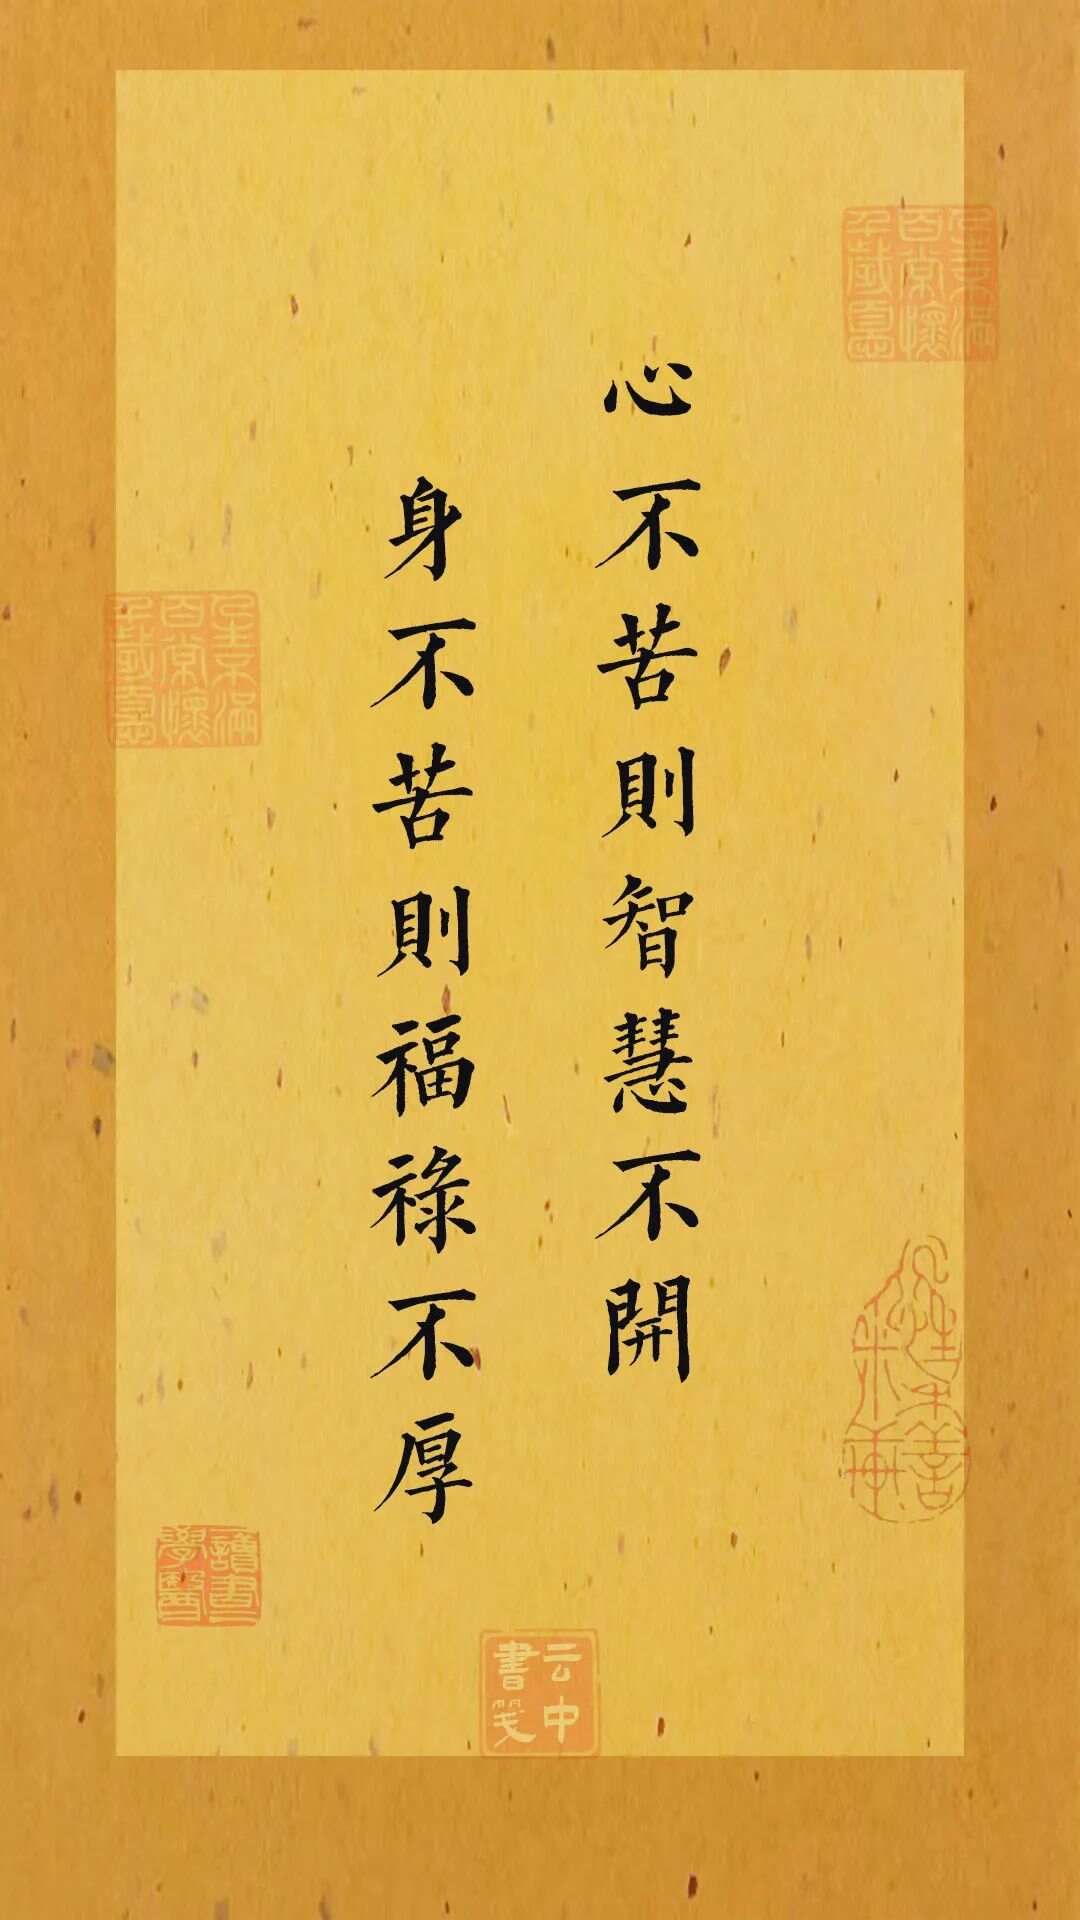 心不苦則智慧不開
身不苦則福祿不厚
讀書
學醫
云中
書笺